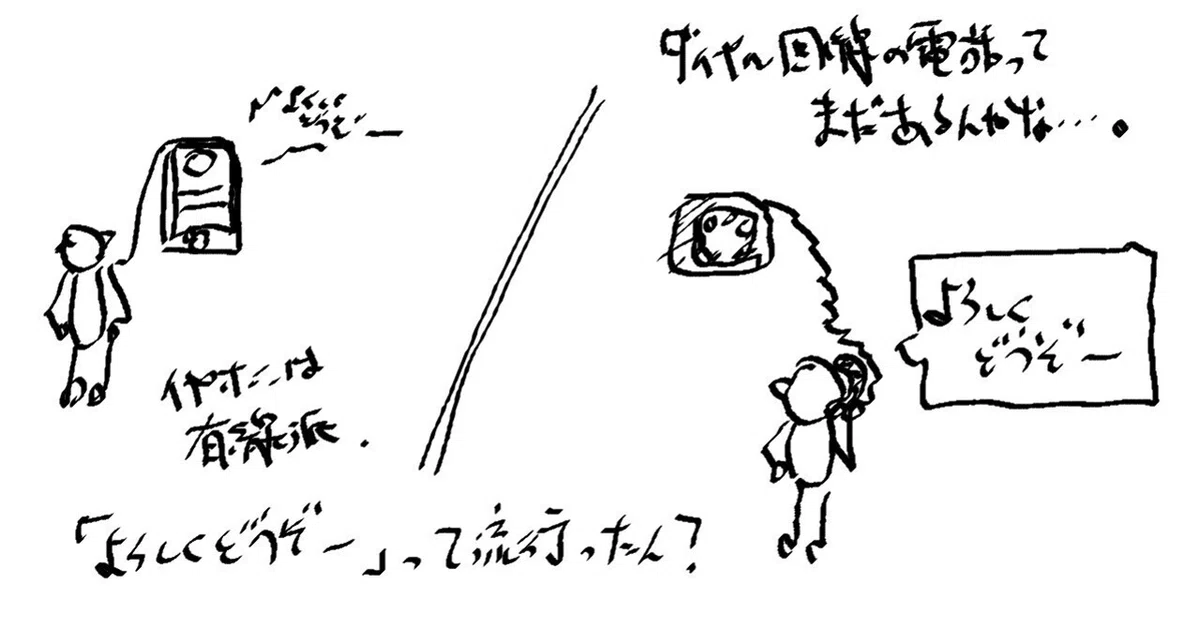 ダイヤル回線の電話って
まだあるんかな…。
よろしく
どうぞー
よろしく
どうぞー
イヤホンは
有線派.
「よろしくどうぞー」って流行ったん?